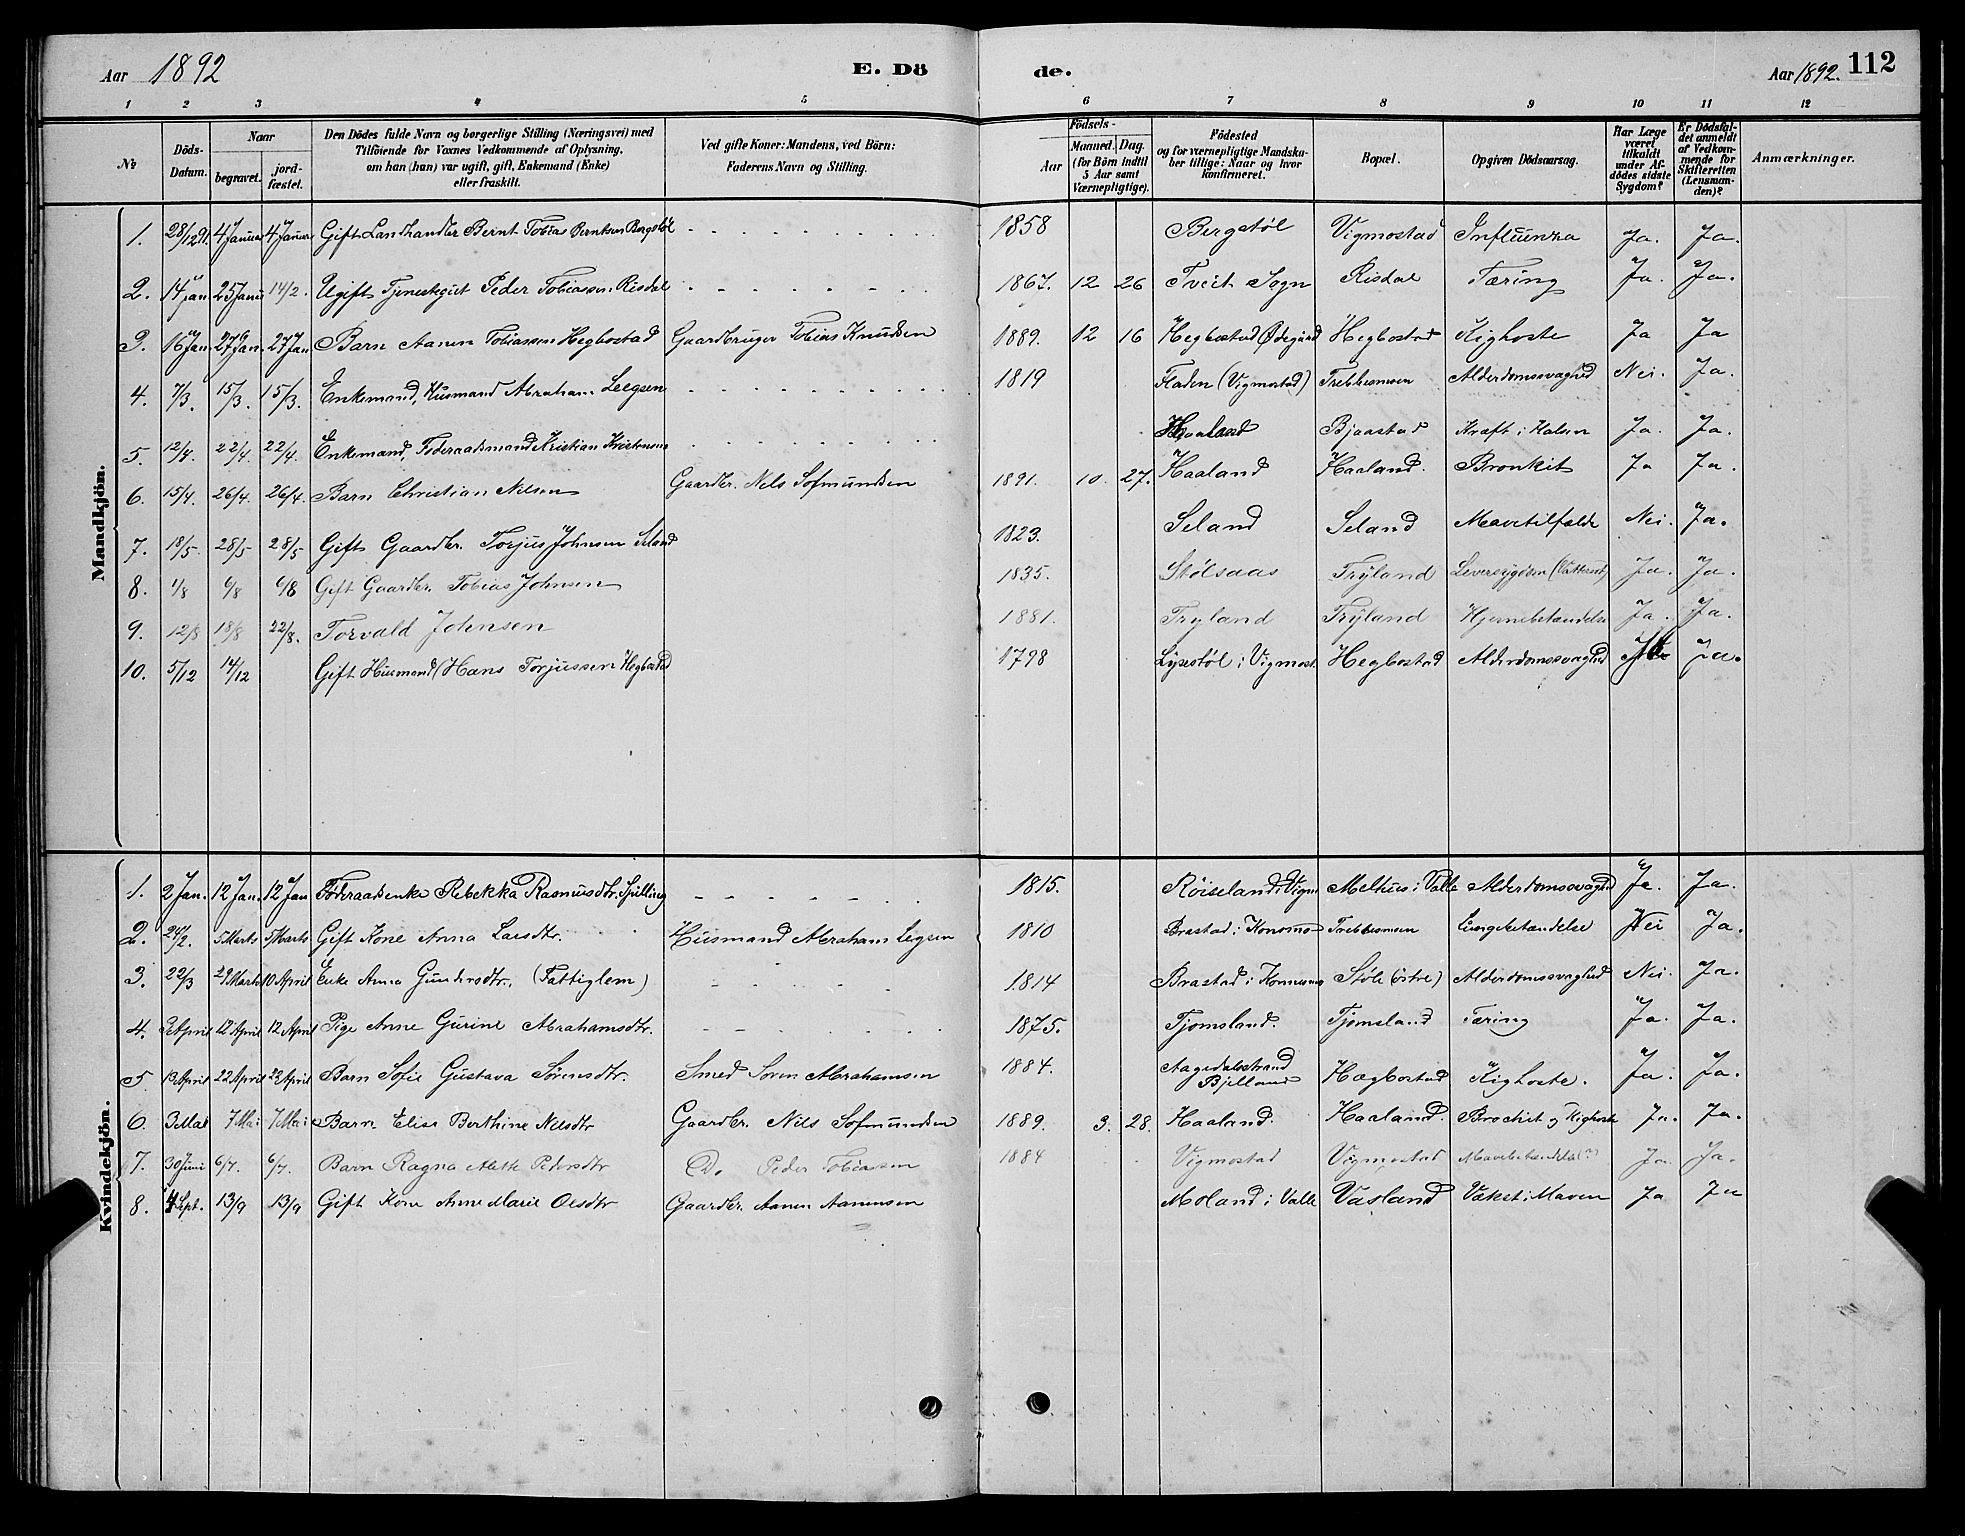 Aar 1892
E. Dö
de.
Aar 1892. 112
1 2 3 4 5 6 7 8 9 10 11 12
No
Döds-Datum.
Naar
begravet.
jord-fæstet.
Den Dödes fulde Navn og borgerlige Stilling (Næringsvei) med
Tilföiende for Voxnes Vedkommende af Oplysning,
om han (hun) var ugift, gift, Enkemand (Enke)
eller fraskilt.
Ved gifte Koner: Mandens, ved Börn:
Faderens Navn og Stilling.
Födsels-
Aar
Maaned. Dag.
(for Börn indtil
5 Aar samt
Værnepligtige).
Födested
og for værnepligtige Mandska-
ber tillige: Naar og hvor
konfirmeret.
Bopæl.
Opgiven Dödsaarsag.
Har Læge
været
tilkaldt
under Af-
dödes sidste
Sygdom?
Er Dödsfal-
det anmeldt
af Vedkom-
mende for
Skifteretten
(Lensman-
den)?
Anmærkninger.
Mandkjön.
1. 28/12 91. 4 Januar 4 Januar Gift Landhandler Bernt Tobias Berntsen Bergstøl 1858 Bergstøl Vigmostad Influenza Ja. Ja.
2. 14 Jan 25 Janu 14/2. Ugift Tjenestegut Peder Tobiassen Risdal 1867. 12 26 Tveit Sogn Risdal Tæring Ja. Ja.
3. 16 Jan. 27 Jan. 27 Jan Barn Aanen Tobiassen Hegbostad Gaardbruger Tobias Knudsen 1889. 12 16 Hegbostad Ødegaard Hegbostad Kighoste Ja Ja
4. 7/3. 15/3. 15/3. Enkemand, Husmand Abraham Leegsen 1819 Fladen (Vigmostad) Trebbesmoen Alderdomssvaghed Nei. Ja.
5. 12/4. 22/4. 22/4. Enkemand, Føderaadsmand Kristian Kristensen Haaland Bjaastad Kræft i Halsen Ja. Ja.
6. 15/4. 26/4. 26/4. Barn Christian Nilsen Gaardbr. Nels Sofmundsen 1891. 10. 27. Haaland Haaland. Bronkit Ja Ja.
7. 18/5. 28/5 28/5 Gift Gaardbr. Torjus Johnsen Seland 1823. Seland Seland Mavetilfælde Nei. Ja.
8. 1/8 6/8 6/8 Gift Gaardbr. Tobias Johnsen 1835. Stølsaas Tryland Leversygdom Ja. Ja.
9. 12/8 18/8 22/8. Torvald Johnsen 1881. Tryland Tryland Hjernebetændelse Ja. Ja.
10. 5/12 14/12 Gift Husmand (Hans Torjussen Hegbostad 1798 Lysestøl i Vigmost. Hegbostad Alderdomssvaghed Ja.
Kvindekjön.
1. 2 Jan. 12 Jan. 12 Jan Føderaadsenke Rebekka Rasmusdtr. Spilling 1815. Røiseland i Vigm Melhus i Valle Alderdomssvaghed Ja. Ja.
2. 24/2. 5 Marts 5 Marts Gift Kone Anna Larsdtr. Husmand Abraham Legsen 1810 Brastad i Konsmo Trebbesmoen Lungebetændelse Nei Ja.
3. 22/3 29 Marts 10 April Enke Anna Gundersdtr. (Fattiglem) 1814 Brastad i Konsmo Støle (østre) Alderdomssvaghed Nei. Ja.
4. 3 April 12 April 12 April Pige Anne Gurine Abrahamsdtr. 1875. Tjomsland. Tjomsland Tæring Ja. Ja.
5 13 April 22 April 22 April Barn Sofie Gustava Sørensdtr. Smed Soren Abrahamsen 1884. Aagedalsstrand Bjelland Hægbostad Kighoste. Ja. Ja.
6. 3 Mai 7 Mai 7 Mai Barn Elise Berthine Nelsdtr Gaardbr. Nils Sofmundsen 1889. 3. 28. Haaland. Haaland. Brockit og Kighoste Ja. Ja.
7. 30 Juni 6/7. 6/7. Barn Ragna Alette Pedersdtr Do Peder Tobiassen 1884 Vigmostad Vigmostad Mavebetændelse (?) Ja. Ja.
8. 4 Sept. 13/9 13/9 Gift Kone Anne Marie Olsdtr Gaardbr. Aanen Aanensen Moland i Valle Vasland Vækst i Maven Ja Ja